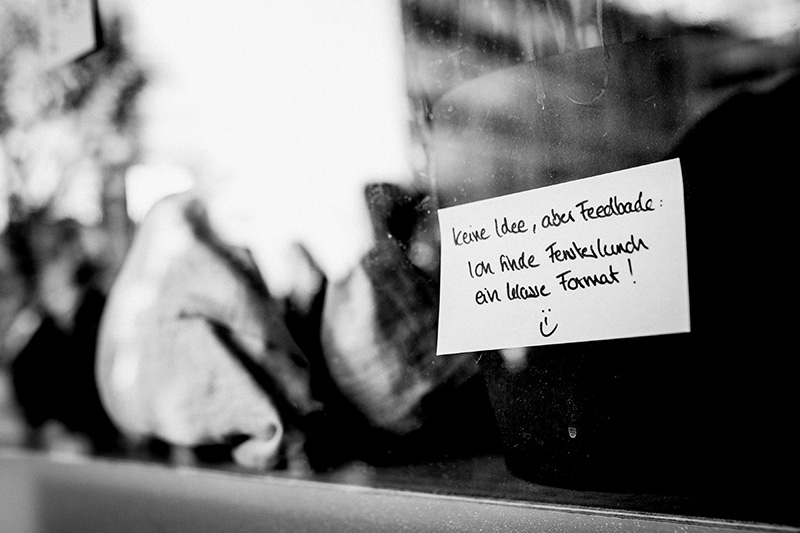 keine Idee, aber Feedback:
Ich finde Fensterlunch
ein klasse Format!